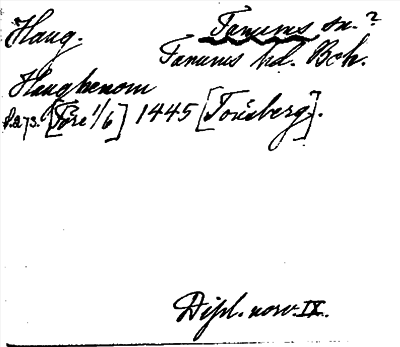 Haug. Tanums sn.?
Tanums hd. Boh.
Haughenom
s. 273. [Före 1/6] 1445 [Tønsberg].
Dipl. norv. IX.